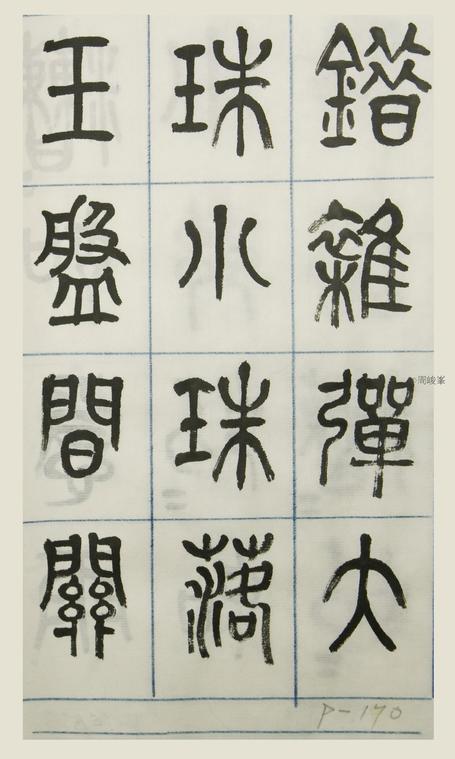 錯雜彈大
珠小珠落
玉盤間關
周峻峯
P-170